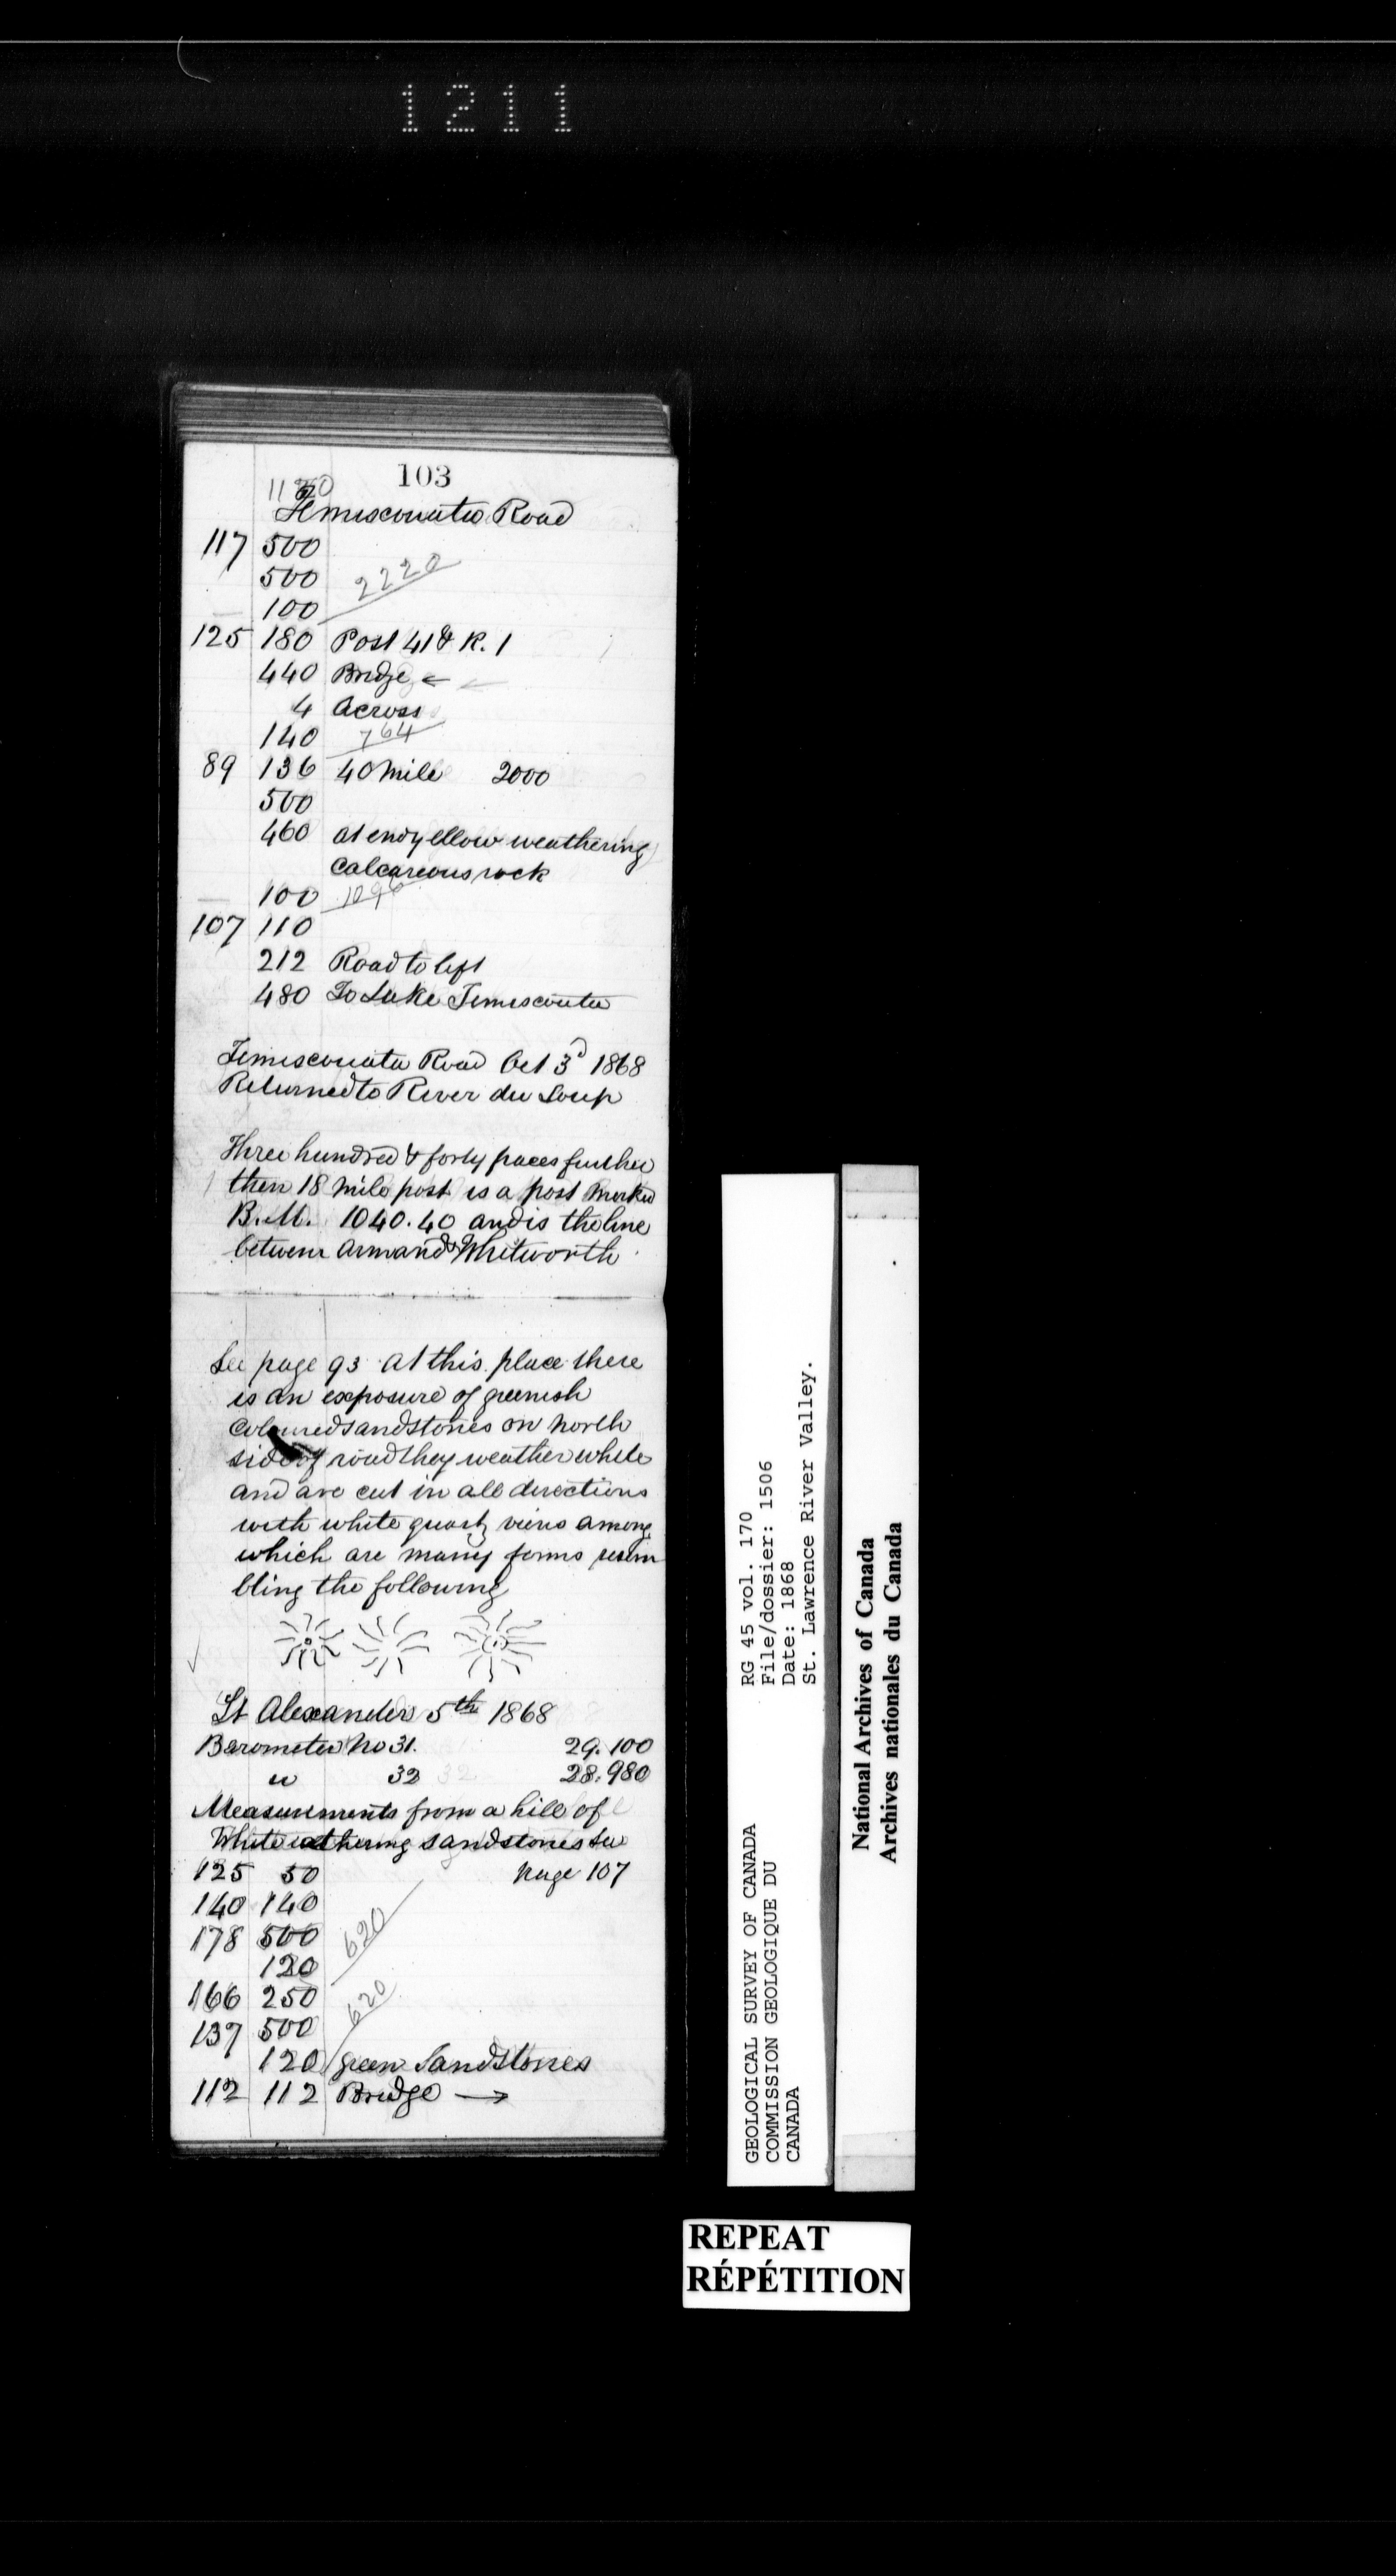 1211
103
1120
Temiscouata Road
117 500
500 2220
100
125 180 Post 41 & R. 1
440 Bridge ←
4 Across
140 764
89 136 40 Mile 2000
500
460 at end yellow weathering
calcareous rock
100 1096
107 110
212 Road to left
480 To Lake Temiscouta
Temiscouata Road Oct 3d 1868
Returned to River du Loup
Three hundred & forty paces further
then 18 mile post is a post marked
B.M. 1040.40 and is the line
between Armand & Whitworth
See page 93 at this place there
is an exposure of greenish
coloured sandstones on north
side of road they weather white
and are cut in all directions
with white quartz viens among
which are many forms resem
bling the following
St Alexander 5th 1868
Barometer No 31. 29.100
" 32 28.980
Measurements from a hill of
White weathering sandstones See
125 50 page 107
140 140
178 500
120 620
166 250
137 500 620
120 green Sandstones
112 112 Bridge →
GEOLOGICAL SURVEY OF CANADA
COMMISSION GEOLOGIQUE DU
CANADA
RG 45 vol. 170
File/dossier: 1506
Date: 1868
St. Lawrence River Valley.
National Archives of Canada
Archives nationales du Canada
REPEAT
RÉPÉTITION